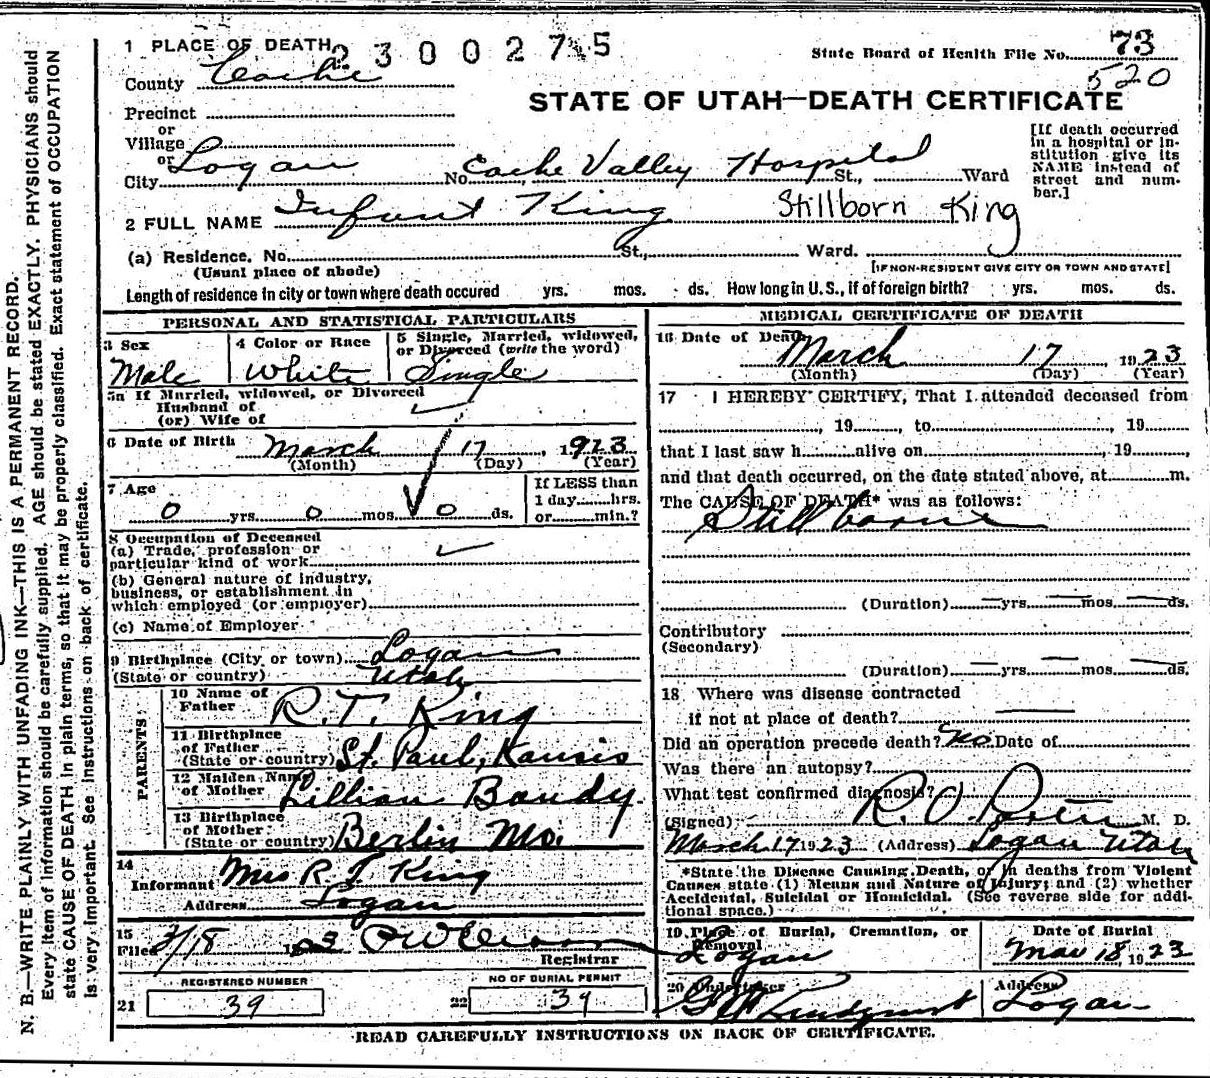 1 PLACE OF DEATH 2300275
State Board of Health File No. 73
County Cache
520
STATE OF UTAH—DEATH CERTIFICATE
Precinct
or
Village
or
City Logan No. Cache Valley Hospital St., Ward
[If death occurred
in a hospital or in-
stitution give its
NAME instead of
street and num-
ber.]
2 FULL NAME Infant King Stillborn King
(a) Residence. No. St., Ward.
(Usual place of abode) [IF NON-RESIDENT GIVE CITY OR TOWN AND STATE]
Length of residence in city or town where death occured yrs. mos. ds. How long in U. S., if of foreign birth? yrs. mos. ds.
PERSONAL AND STATISTICAL PARTICULARS
3 Sex
Male
4 Color or Race
White
5 Single, Married, widowed,
or Divorced (write the word)
Single
5a If Married, widowed, or Divorced
Husband of
(or) Wife of
6 Date of Birth March 17, 1923
(Month) (Day) (Year)
7 Age
0 yrs. 0 mos. 0 ds.
If LESS than
1 day hrs.
or min.?
8 Occupation of Deceased
(a) Trade, profession or
particular kind of work
(b) General nature of industry,
business, or establishment in
which employed (or employer)
(c) Name of Employer
9 Birthplace (City or town) Logan
(State or country) Utah
PARENTS
10 Name of
Father R. T. King
11 Birthplace
of Father
(State or country) St. Paul, Kansis
12 Maiden Name
of Mother Lillian Bandy
13 Birthplace
of Mother
(State or country) Berlin Mo.
14
Informant Mrs R T King
Address Logan
15
Filed 3/18 1923
Registrar
REGISTERED NUMBER
21 39
NO OF BURIAL PERMIT
22 39
MEDICAL CERTIFICATE OF DEATH
16 Date of Death
March 17 1923
(Month) (Day) (Year)
17 I HEREBY CERTIFY, That I attended deceased from
, 19 , to , 19
that I last saw h alive on , 19 ,
and that death occurred, on the date stated above, at m.
The CAUSE OF DEATH* was as follows:
Stillborne
(Duration) yrs. mos. ds.
Contributory
(Secondary)
(Duration) yrs. mos. ds.
18 Where was disease contracted
if not at place of death?
Did an operation precede death? No Date of
Was there an autopsy?
What test confirmed diagnosis?
(Signed) R. O. Porter M. D.
March 17 1923 (Address) Logan Utah
*State the Disease Causing Death, or in deaths from Violent
Causes state (1) Means and Nature of Injury; and (2) whether
Accidental, Suicidal or Homicidal. (See reverse side for addi-
tional space.)
19 Place of Burial, Cremation, or
Removal
Logan
Date of Burial
Mar 18, 1923
20 Undertaker
Lundquist
Address
Logan
READ CAREFULLY INSTRUCTIONS ON BACK OF CERTIFICATE.
N. B.—WRITE PLAINLY WITH UNFADING INK—THIS IS A PERMANENT RECORD.
Every item of information should be carefully supplied. AGE should be stated EXACTLY. PHYSICIANS should
state CAUSE OF DEATH in plain terms, so that it may be properly classified. Exact statement of OCCUPATION
is very important. See instructions on back of certificate.